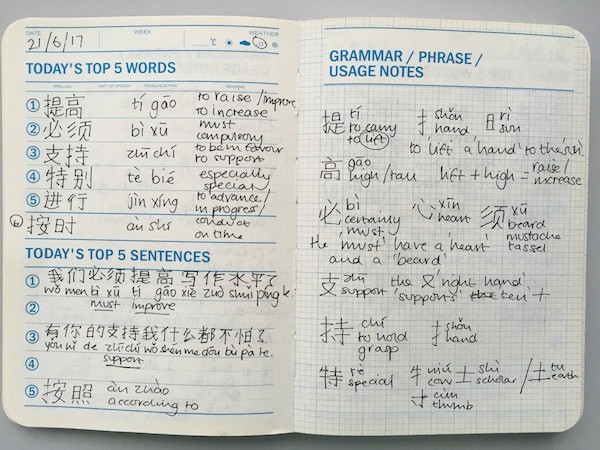 DATE WEEK WEATHER
21/6/17 °C
TODAY'S TOP 5 WORDS
SPELLING PART OF SPEECH PRONUNCIATION MEANING
① 提高 tí gāo to raise/improve
to increase
② 必须 bì xū must
compulsory
③ 支持 zhī chí to be in favour
to support
④ 特别 tè bié especially
special
⑤ 进行 jìn xíng to advance/
in progress/
conduct
⑥ 按时 àn shí on time
TODAY'S TOP 5 SENTENCES
① 我们必须提高写作水平了
wǒ men bì xū tí gāo xiě zuò shuǐ píng le
② must improve
③ 有你的支持我什么都不怕了
yǒu nǐ de zhī chí wǒ shén me dōu bù pà le
support
④
⑤ 按照 àn zhào
according to
GRAMMAR / PHRASE /
USAGE NOTES
提 tí 扌 shǒu 日 rì
to carry hand sun
to lift to 'lift' a 'hand' to the sun.
高 gāo
high/tall lift + high = raise/
increase
必 bì 心 xīn 须 xū
certainly heart beard
must mustache
tassel
He 'must' have a 'heart'
and a 'beard'
支 zhī the 又 'right hand'
support 'supports' the ten 十
持 chí 扌 shǒu
to hold hand
grasp
特 tè 牜 niú 士 shì / 土 tu
special cow scholar earth
寸 cùn
thumb